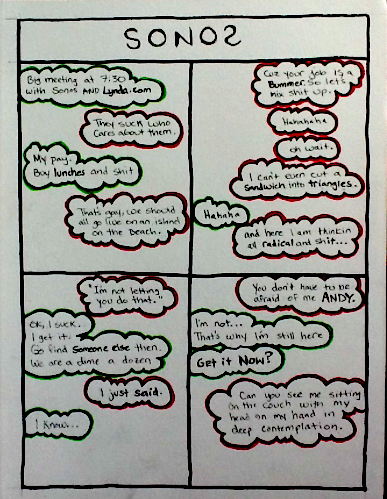 SONOS
Big meeting at 7:30
with Sonos AND Lynda.com
They suck who
cares about them.
My pay.
Buy lunches and shit
That's gay, we should
all go live on an island
on the beach.
Cuz your job is a
Bummer. So let's
mix shit up.
Hahahaha
oh wait.
I can't even cut a
Sandwich into triangles.
Hahaha
and here I am thinkin
all radical and shit...
"I'm not letting
you do that."
Ok, I suck.
I get it.
Go find someone else then.
We are a dime a dozen
I just said.
I know...
You don't have to be
afraid of me ANDY.
I'm not...
That's why I'm still here
Get it Now?
Can you see me sitting
on the couch with my
head on my hand in
deep contemplation.